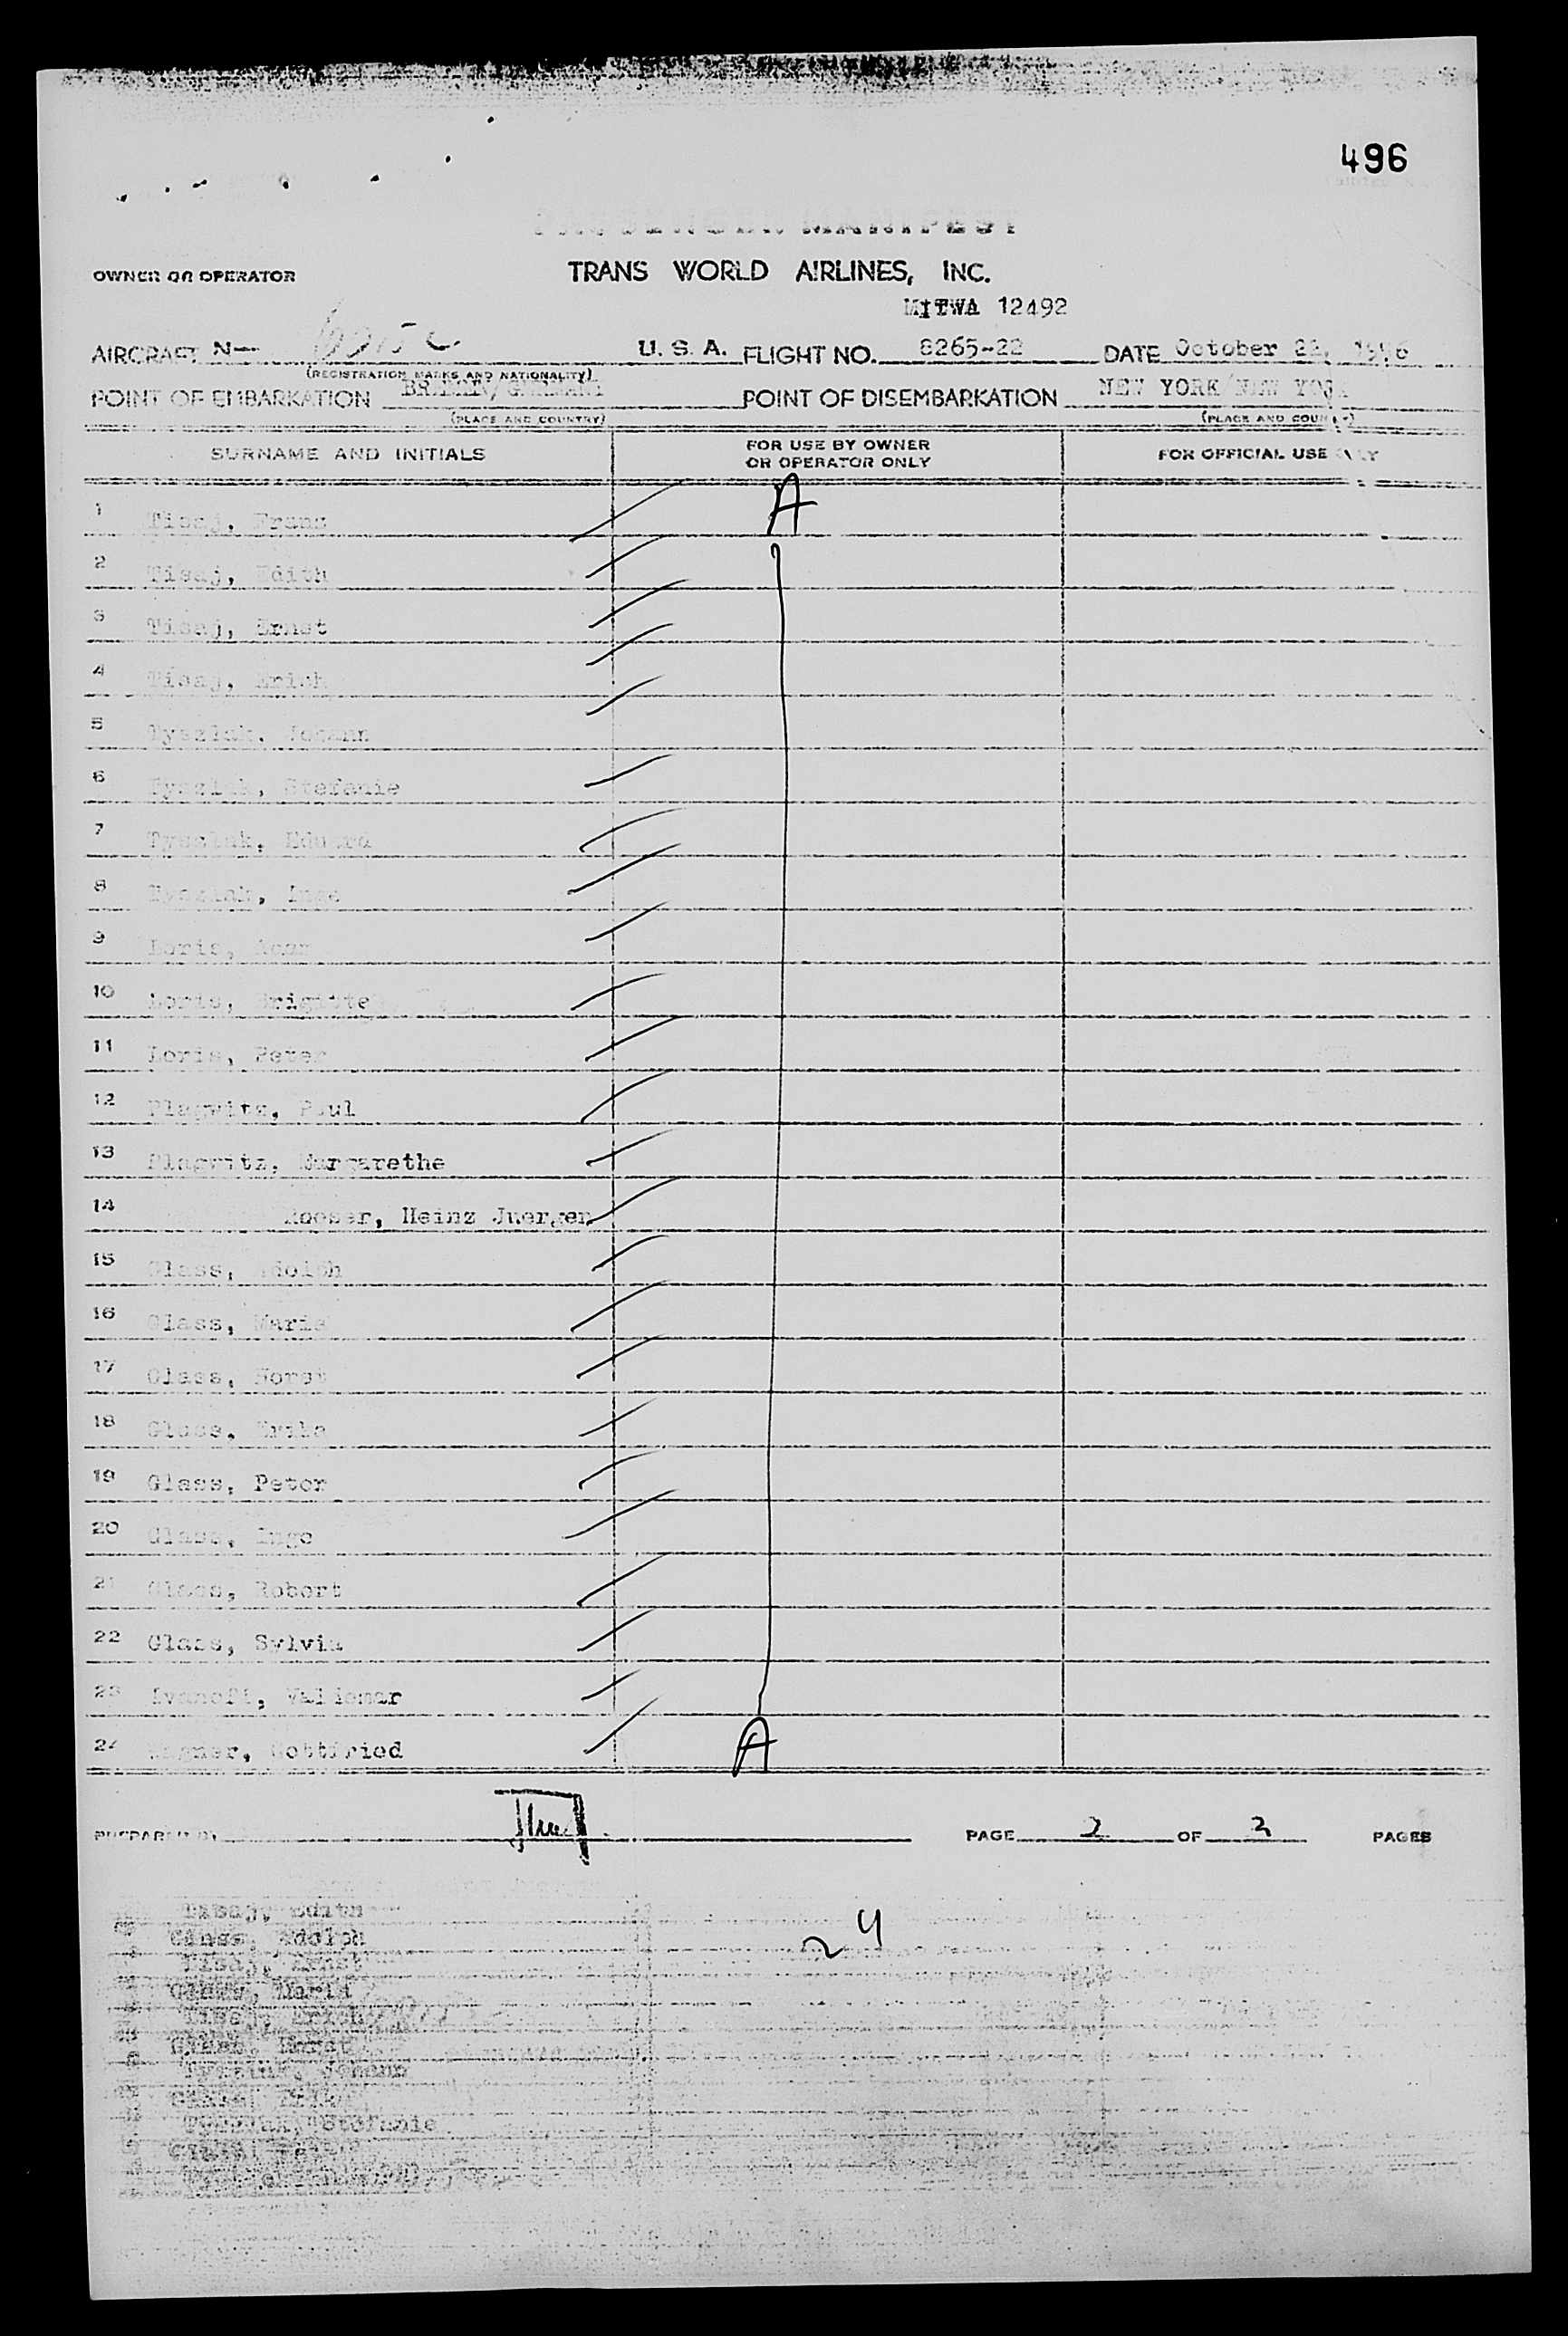 496
PASSENGER MANIFEST
OWNER OR OPERATOR TRANS WORLD AIRLINES, INC.
MITWA 12492
AIRCRAFT N— U. S. A. FLIGHT NO. 8265-22 DATE October 22, 1956
(REGISTRATION MARKS AND NATIONALITY)
POINT OF EMBARKATION BREMEN/GERMANY POINT OF DISEMBARKATION NEW YORK/NEW YORK
(PLACE AND COUNTRY) (PLACE AND COUNTRY)
SURNAME AND INITIALS FOR USE BY OWNER OR OPERATOR ONLY FOR OFFICIAL USE ONLY
1 Tisaj, Franz A
2 Tisaj, Edith
3 Tisaj, Ernst
4 Tisaj, Erich
5 Tyszlak, Johann
6 Tyszlak, Stefanie
7 Tyszlak, Eduard
8 Tyszlak, Inge
9 Loris, Adam
10 Loris, Brigitte
11 Loris, Peter
12 Plagwitz, Paul
13 Plagwitz, Margarethe
14 Rooser, Heinz Juergen
15 Glass, Adolph
16 Glass, Maria
17 Glass, Horst
18 Glass, Erika
19 Glass, Peter
20 Glass, Ingo
21 Glass, Robert
22 Glass, Sylvia
23 Ivanoff, Waldemar
24 Wagner, Gottfried A
PREPARED BY PAGE 2 OF 2 PAGES
Tisaj, Edith
Glass, Adolph
24
Tisaj, Ernst
Glass, Maria
Tisaj, Erich
Glass, Horst
Tyszlak, Johann
Glass, Erika
Tyszlak, Stefanie
Glass, Peter